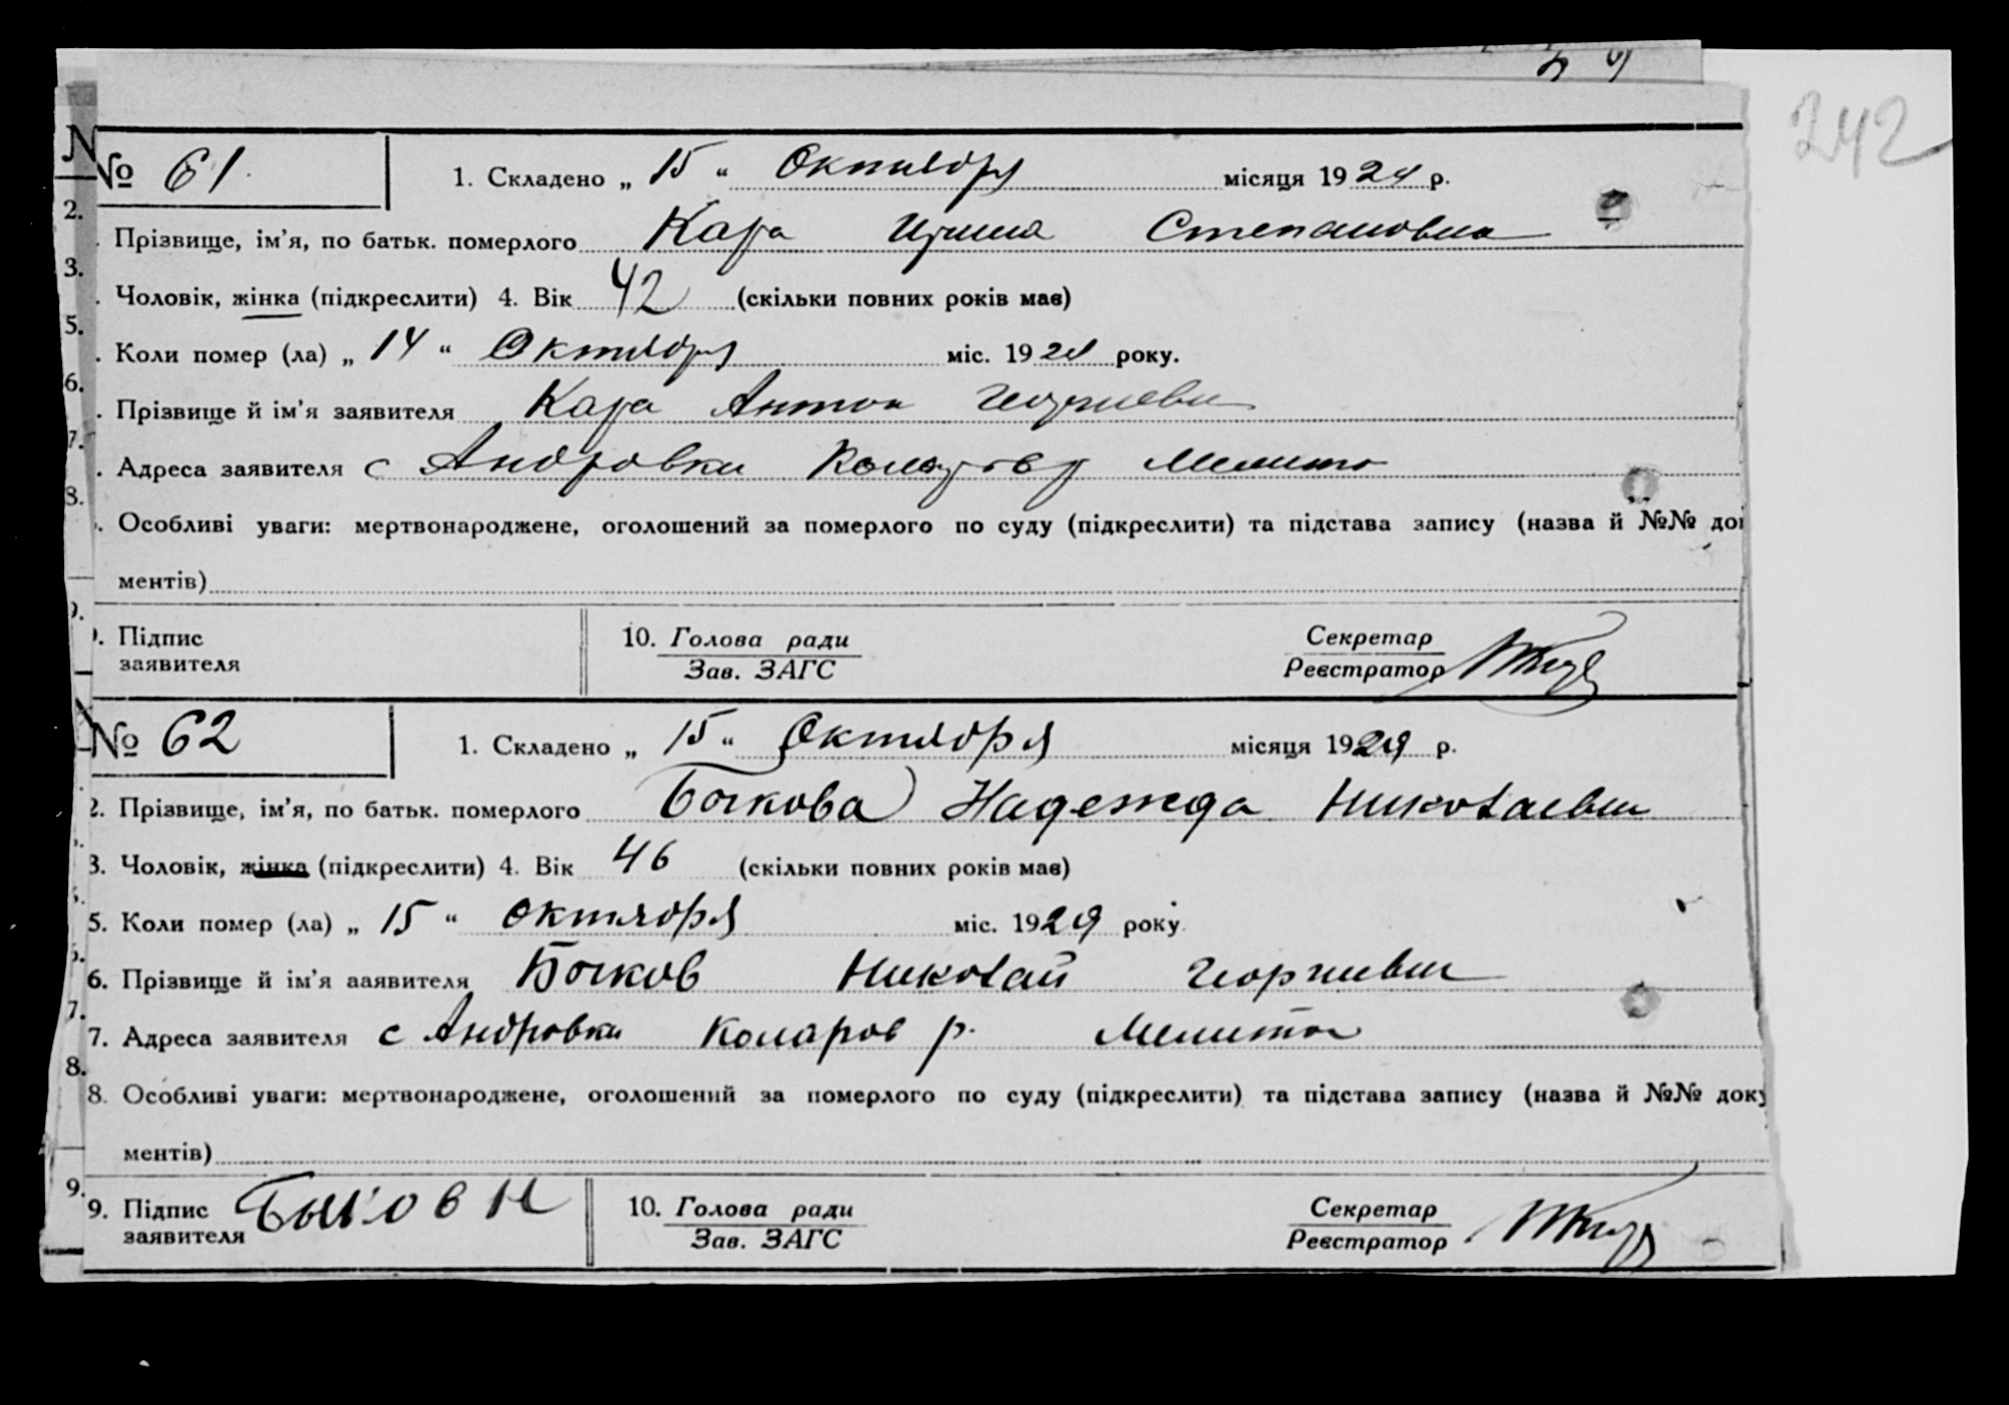 242
№ 61. 1. Складено „ 15 “ Октября місяця 1929 р.
2. Прізвище, ім’я, по батьк. померлого Кара Ирина Степановна
3. Чоловік, жінка (підкреслити) 4. Вік 42 (скільки повних років має)
5. Коли помер (ла) „ 14 “ Октября міс. 1929 року.
6. Прізвище й ім’я заявителя Кара Антон Георгиевич
7. Адреса заявителя с Андровки Коларов р Мелито
8. Особливі уваги: мертвонароджене, оголошений за померлого по суду (підкреслити) та підстава запису (назва й №№ до
ментів)
9. Підпис заявителя 10. Голова ради Секретар
Зав. ЗАГС Реєстратор
№ 62 1. Складено „ 15 “ Октября місяця 1929 р.
2. Прізвище, ім’я, по батьк. померлого Быкова Надежда Николаевна
3. Чоловік, жінка (підкреслити) 4. Вік 46 (скільки повних років має)
5. Коли помер (ла) „ 15 “ октября міс. 1929 року
6. Прізвище й ім’я ааявителя Быков Николай Георгиевич
7. Адреса заявителя с Андровки Коларов р. Мелитоп
8. Особливі уваги: мертвонароджене, оголошений за померлого по суду (підкреслити) та підстава запису (назва й №№ доку
ментів)
9. Підпис заявителя Быков Н 10. Голова ради Секретар
Зав. ЗАГС Реєстратор